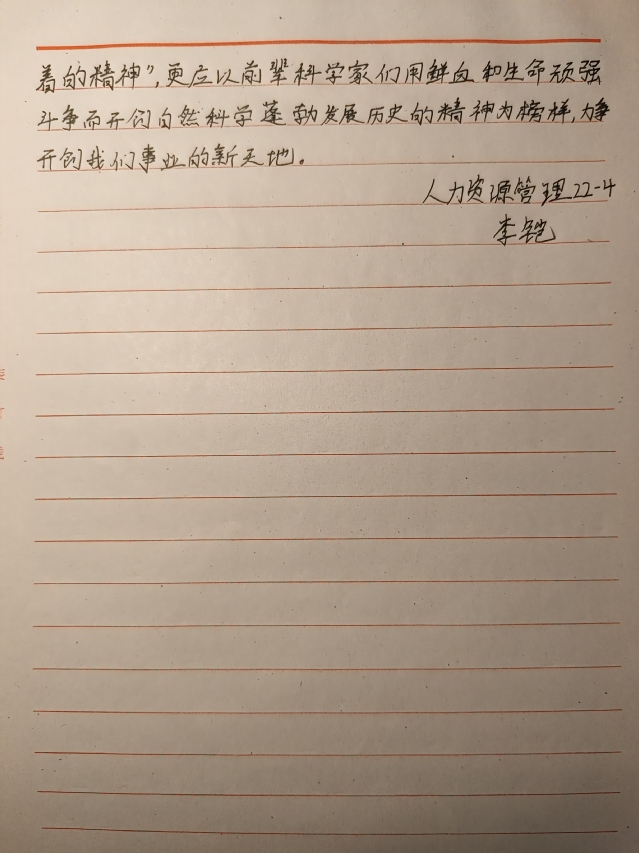 着的精神”,更应以前辈科学家们用鲜血和生命顽强
斗争而开创自然科学蓬勃发展历史的精神为榜样,力争
开创我们事业的新天地。
人力资源管理22-4
李铠